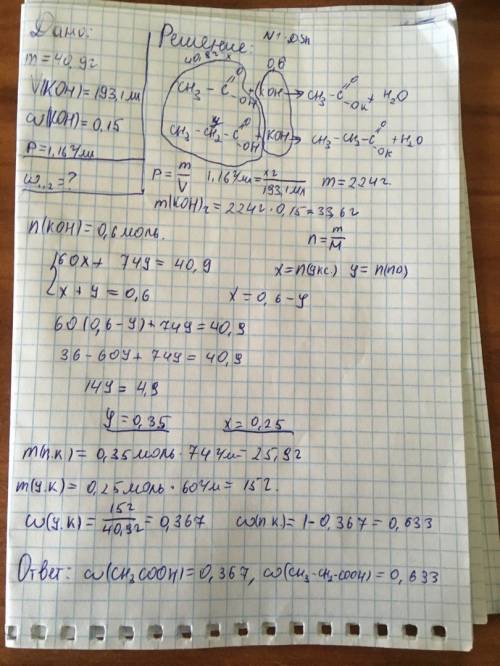 Дано:
m=40,9г
V(KOH)=193,1мл
ω(KOH)=0,15
P=1,16г/мл
ω₁,₂=?
Решение:
40,9г x
0,6
CH₃ - C O OH + KOH → CH₃ - C O OK + H₂O
y
CH₃ - CH₂ - C O OH + KOH → CH₃ - CH₂ - C O OK + H₂O
P = m/V 1,16г/мл = xг/193,1мл m=224г
m(KOH)₂ = 224г · 0,15 = 33,6г
n(KOH)=0,6моль.
n = m/M
{60x + 74y = 40,9
x = n(укс.) y = n(по)
x + y = 0,6
x = 0,6 - y
60(0,6-y)+74y = 40,9
36 - 60y + 74y = 40,9
14y = 4,9
y = 0,35 x = 0,25
m(п.к) = 0,35моль · 74г/м = 25,9г
m(у.к) = 0,25моль · 60г/м = 15г.
ω(у.к) = 15г/40,9г = 0,367 ω(п.к.) = 1 - 0,367 = 0,633
Ответ: ω(CH₃COOH) = 0,367, ω(CH₃-CH₂-COOH) = 0,633